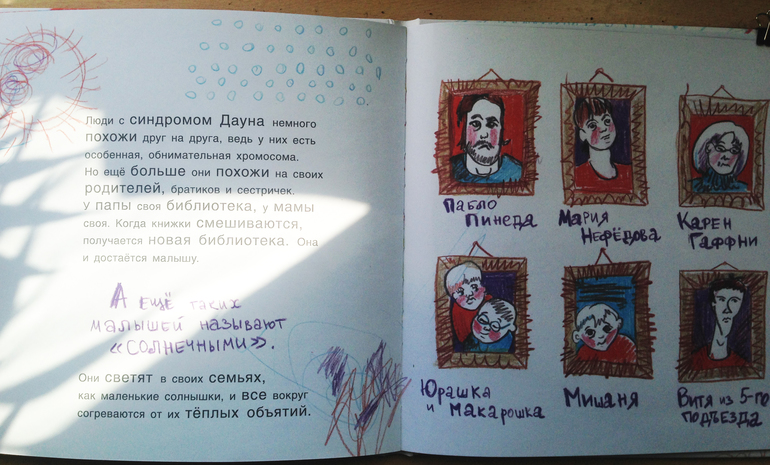 Люди с синдромом Дауна немного
похожи друг на друга, ведь у них есть
особенная, обнимательная хромосома.
Но ещё больше они похожи на своих
родителей, братиков и сестричек.
У папы своя библиотека, у мамы
своя. Когда книжки смешиваются,
получается новая библиотека. Она
и достаётся малышу.
А ещё таких
малышей называют
«солнечными».
Они светят в своих семьях,
как маленькие солнышки, и все вокруг
согреваются от их тёплых объятий.
Пабло
Пинеда
Мария
Нефёдова
Карен
Гаффни
Юрашка
и Макарошка
Мишаня
Витя из 5-го
подъезда